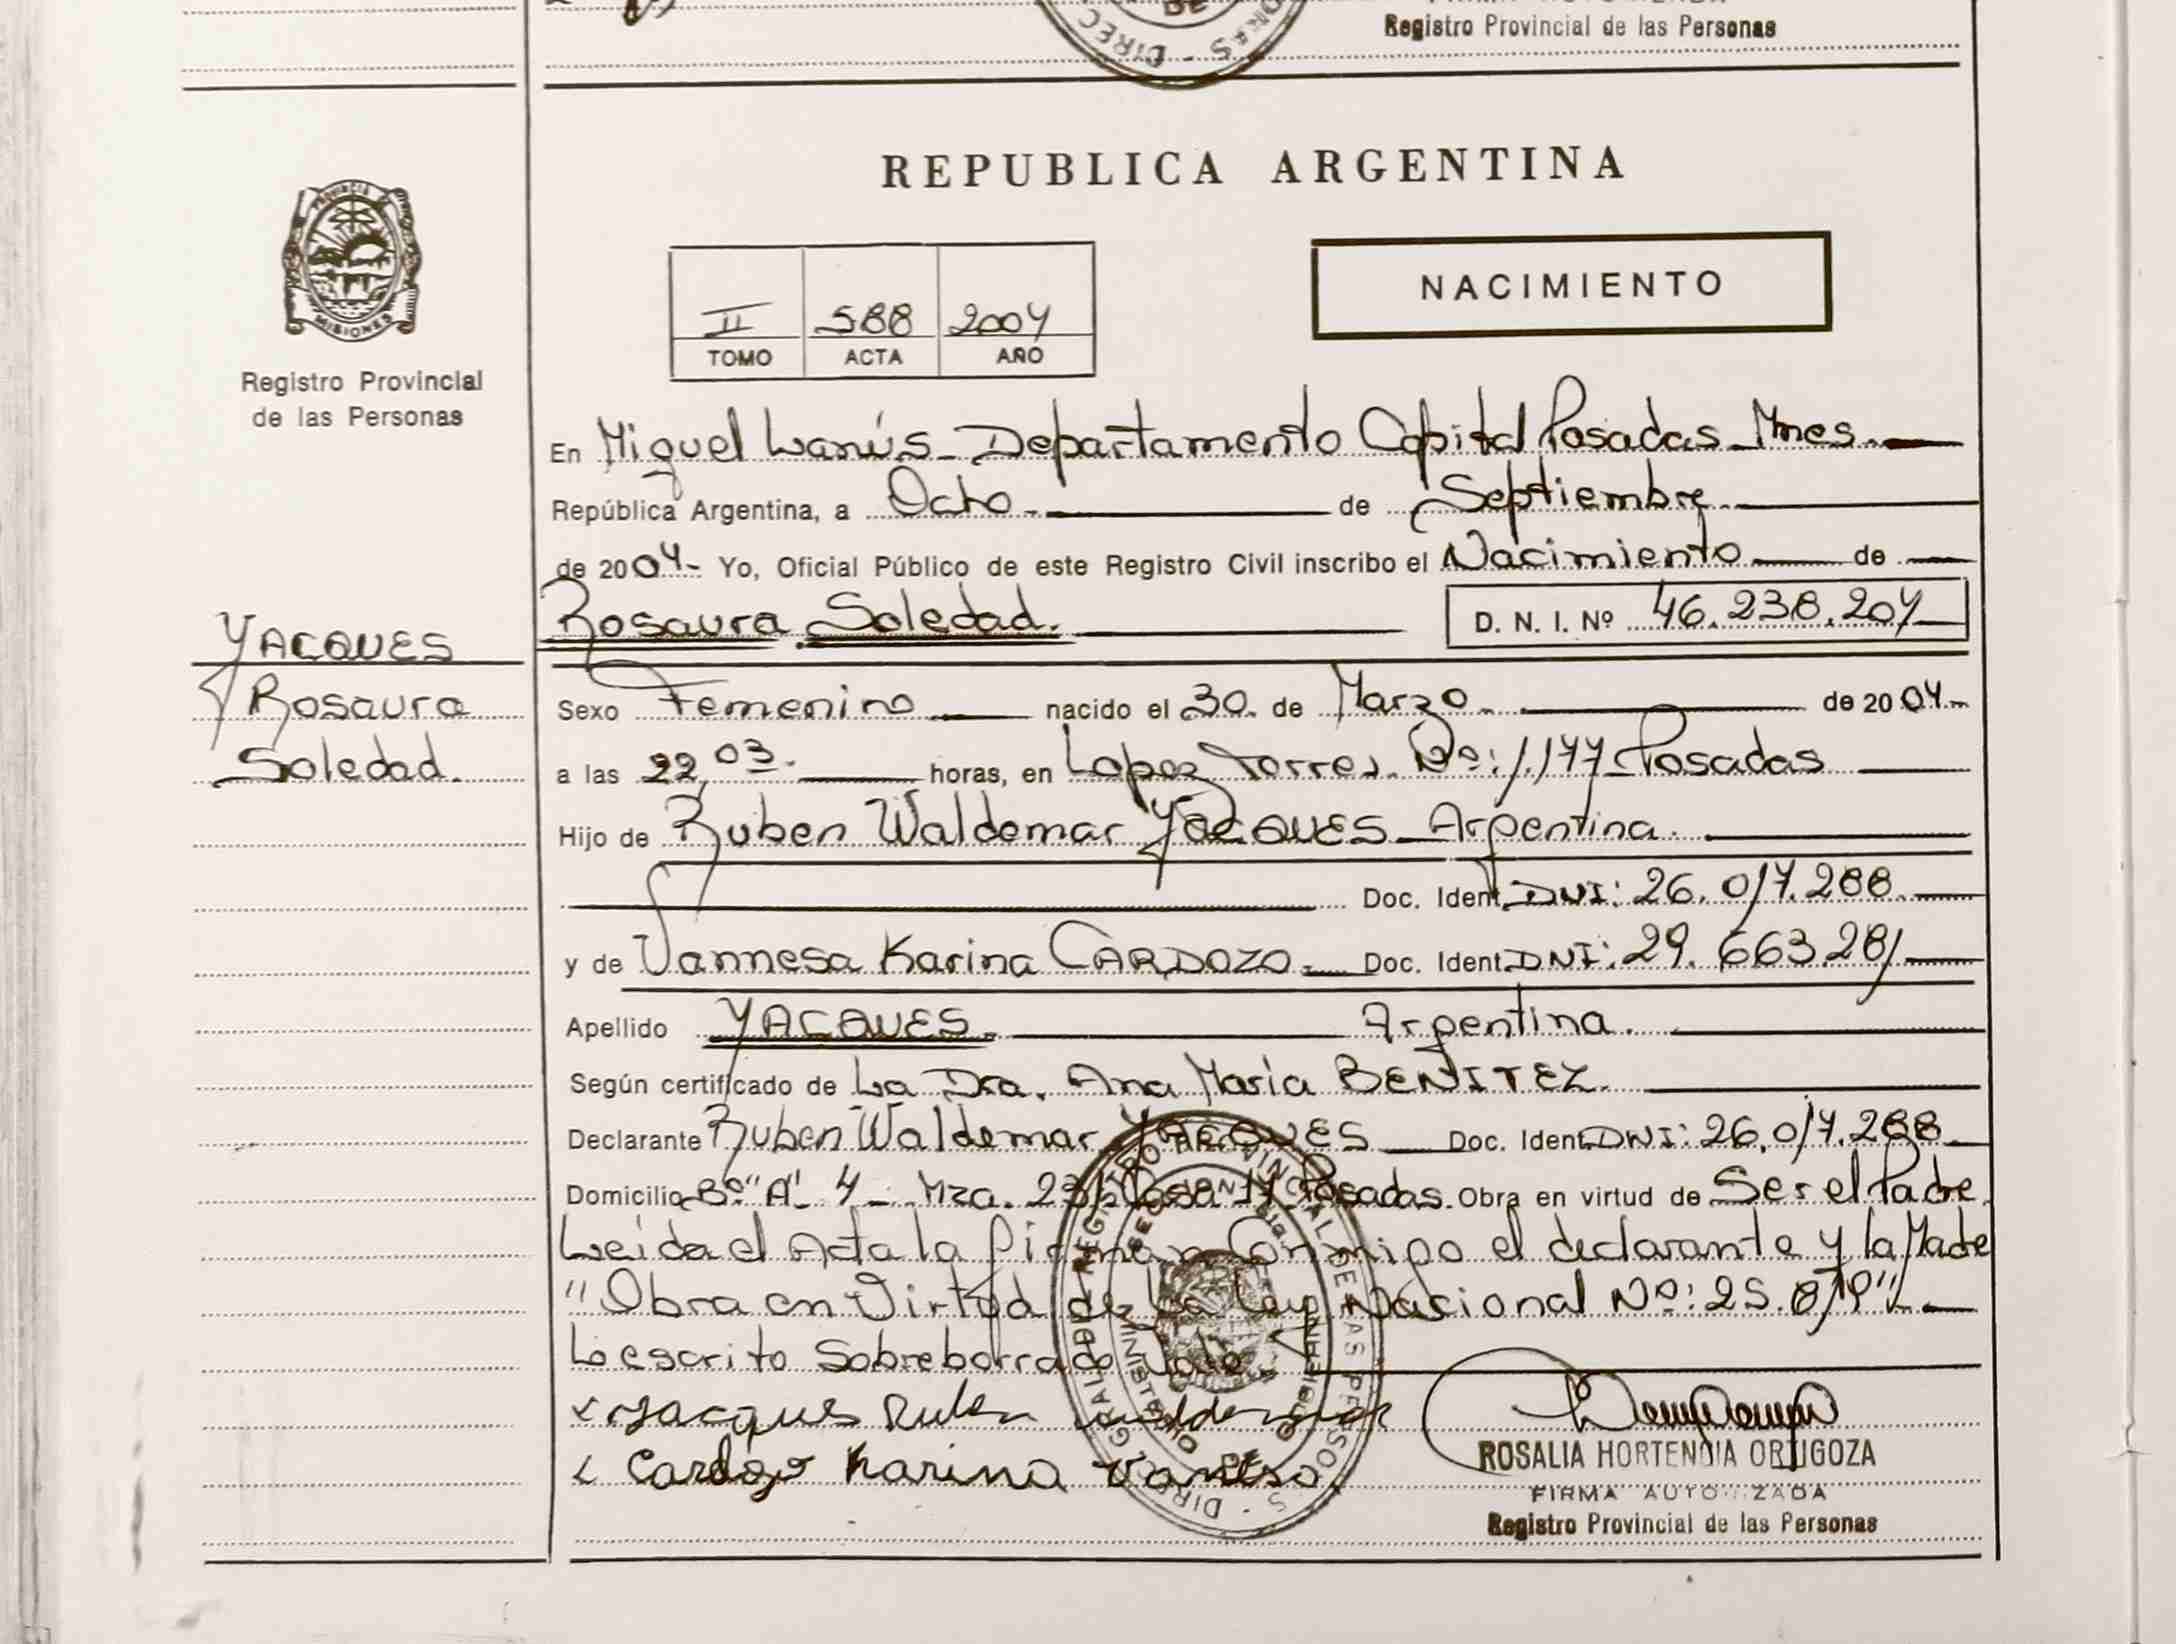 Registro Provincial de las Personas
REPUBLICA ARGENTINA
PROVINCIA DE
MISIONES
Registro Provincial
de las Personas
NACIMIENTO
II 588 2004
TOMO ACTA AÑO
En Miguel Lanús - Departamento Capital Posadas - Mnes.
República Argentina, a Ocho.- de Septiembre
de 2004.- Yo, Oficial Público de este Registro Civil inscribo el Nacimiento de
Rosaura Soledad. D. N. I. Nº 46.238.204
YACQUES
Rosaura
Soledad.
Sexo Femenino nacido el 30. de Marzo. de 2004.-
a las 22,03. horas, en Lopez Torres. Nº: 1.177 - Posadas
Hijo de Ruben Waldemar YACQUES - Argentina.
Doc. Ident. DNI: 26.017.288.
y de Vannesa Karina CARDOZO.- Doc. Ident. DNI: 29.663.281
Apellido YACQUES. Argentina.
Según certificado de La Dra. Ana María BENITEZ.
Declarante Ruben Waldemar YACQUES Doc. Ident. DNI: 26.017.288
Domicilio Bº "A"- 4 - Mza. Casa Posadas. Obra en virtud de Ser el Padre.
Leida el Acta la firman Conmigo el declarante y la Madre
"Obra en Virtud de la Ley Nacional Nº: 25.819"
Lo escrito Sobreborrado Vale
Yacques Ruben Waldemar
Cardozo Karina Vanesa
ROSALIA HORTENCIA ORTIGOZA
FIRMA AUTORIZADA
Registro Provincial de las Personas